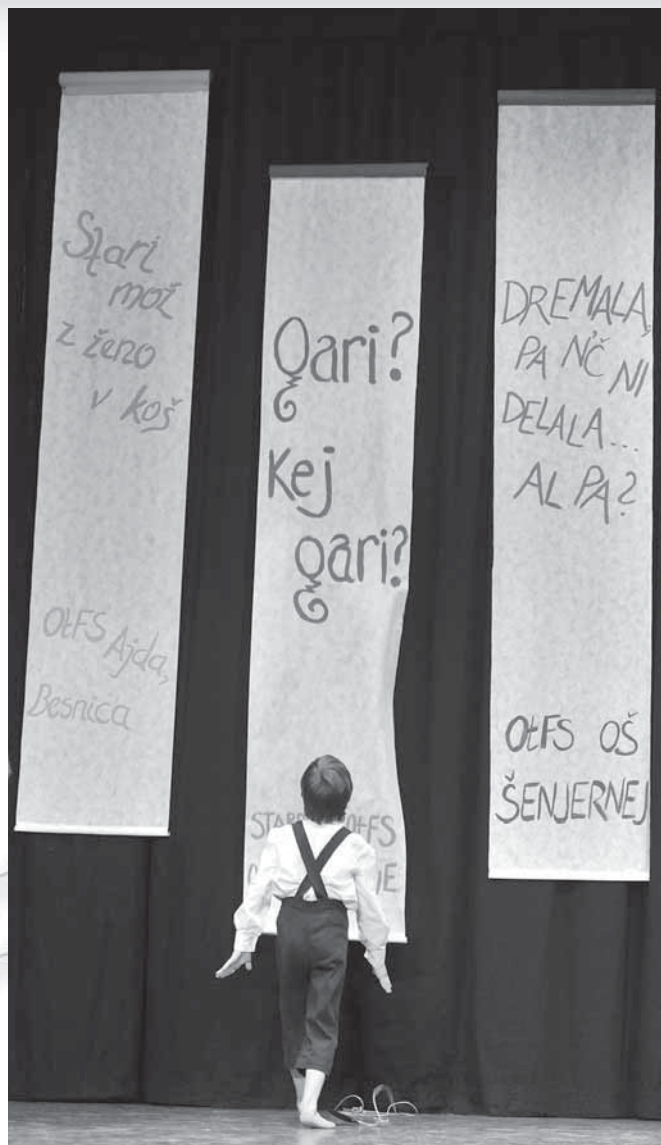 Stari
mož
z ženo
v koš
OtFS Ajda,
Besnica
Gari?
Kej
gari?
OtFS
DREMALA,
PA N'Č NI
DELALA...
AL PA?
OtFS OŠ
ŠENJERNEJ